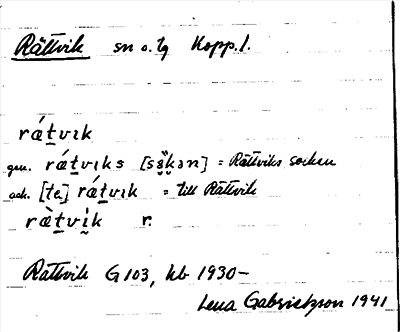 Rättvik sn o. tg Kopp. l.
rátvɩk
gen. rátvɩks [sǒ̤kən] = Rättviks socken
ack. [te] rátvɩk = till Rättvik
rà̤tvì̤k r.
Rättvik G 103, hb 1930–
Lena Gabrielsson 1941